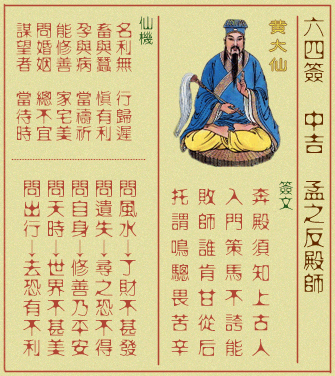 六四簽 中吉 孟之反殿師
黄大仙
簽文
奔殿須知上古人
入門策馬不誇能
敗師誰肯甘從后
托謂鳴驄畏苦辛
仙機
名利無 行歸遲
畜與蠶 慎有利
孕與病 當禱祈
能修善 家宅美
問婚姻 總不宜
謀望者 當待時
問風水↓了財不甚發
問遺失↓尋之恐不得
問自身↓修善乃平安
問天時↓世界不甚美
問出行↓去恐有不利